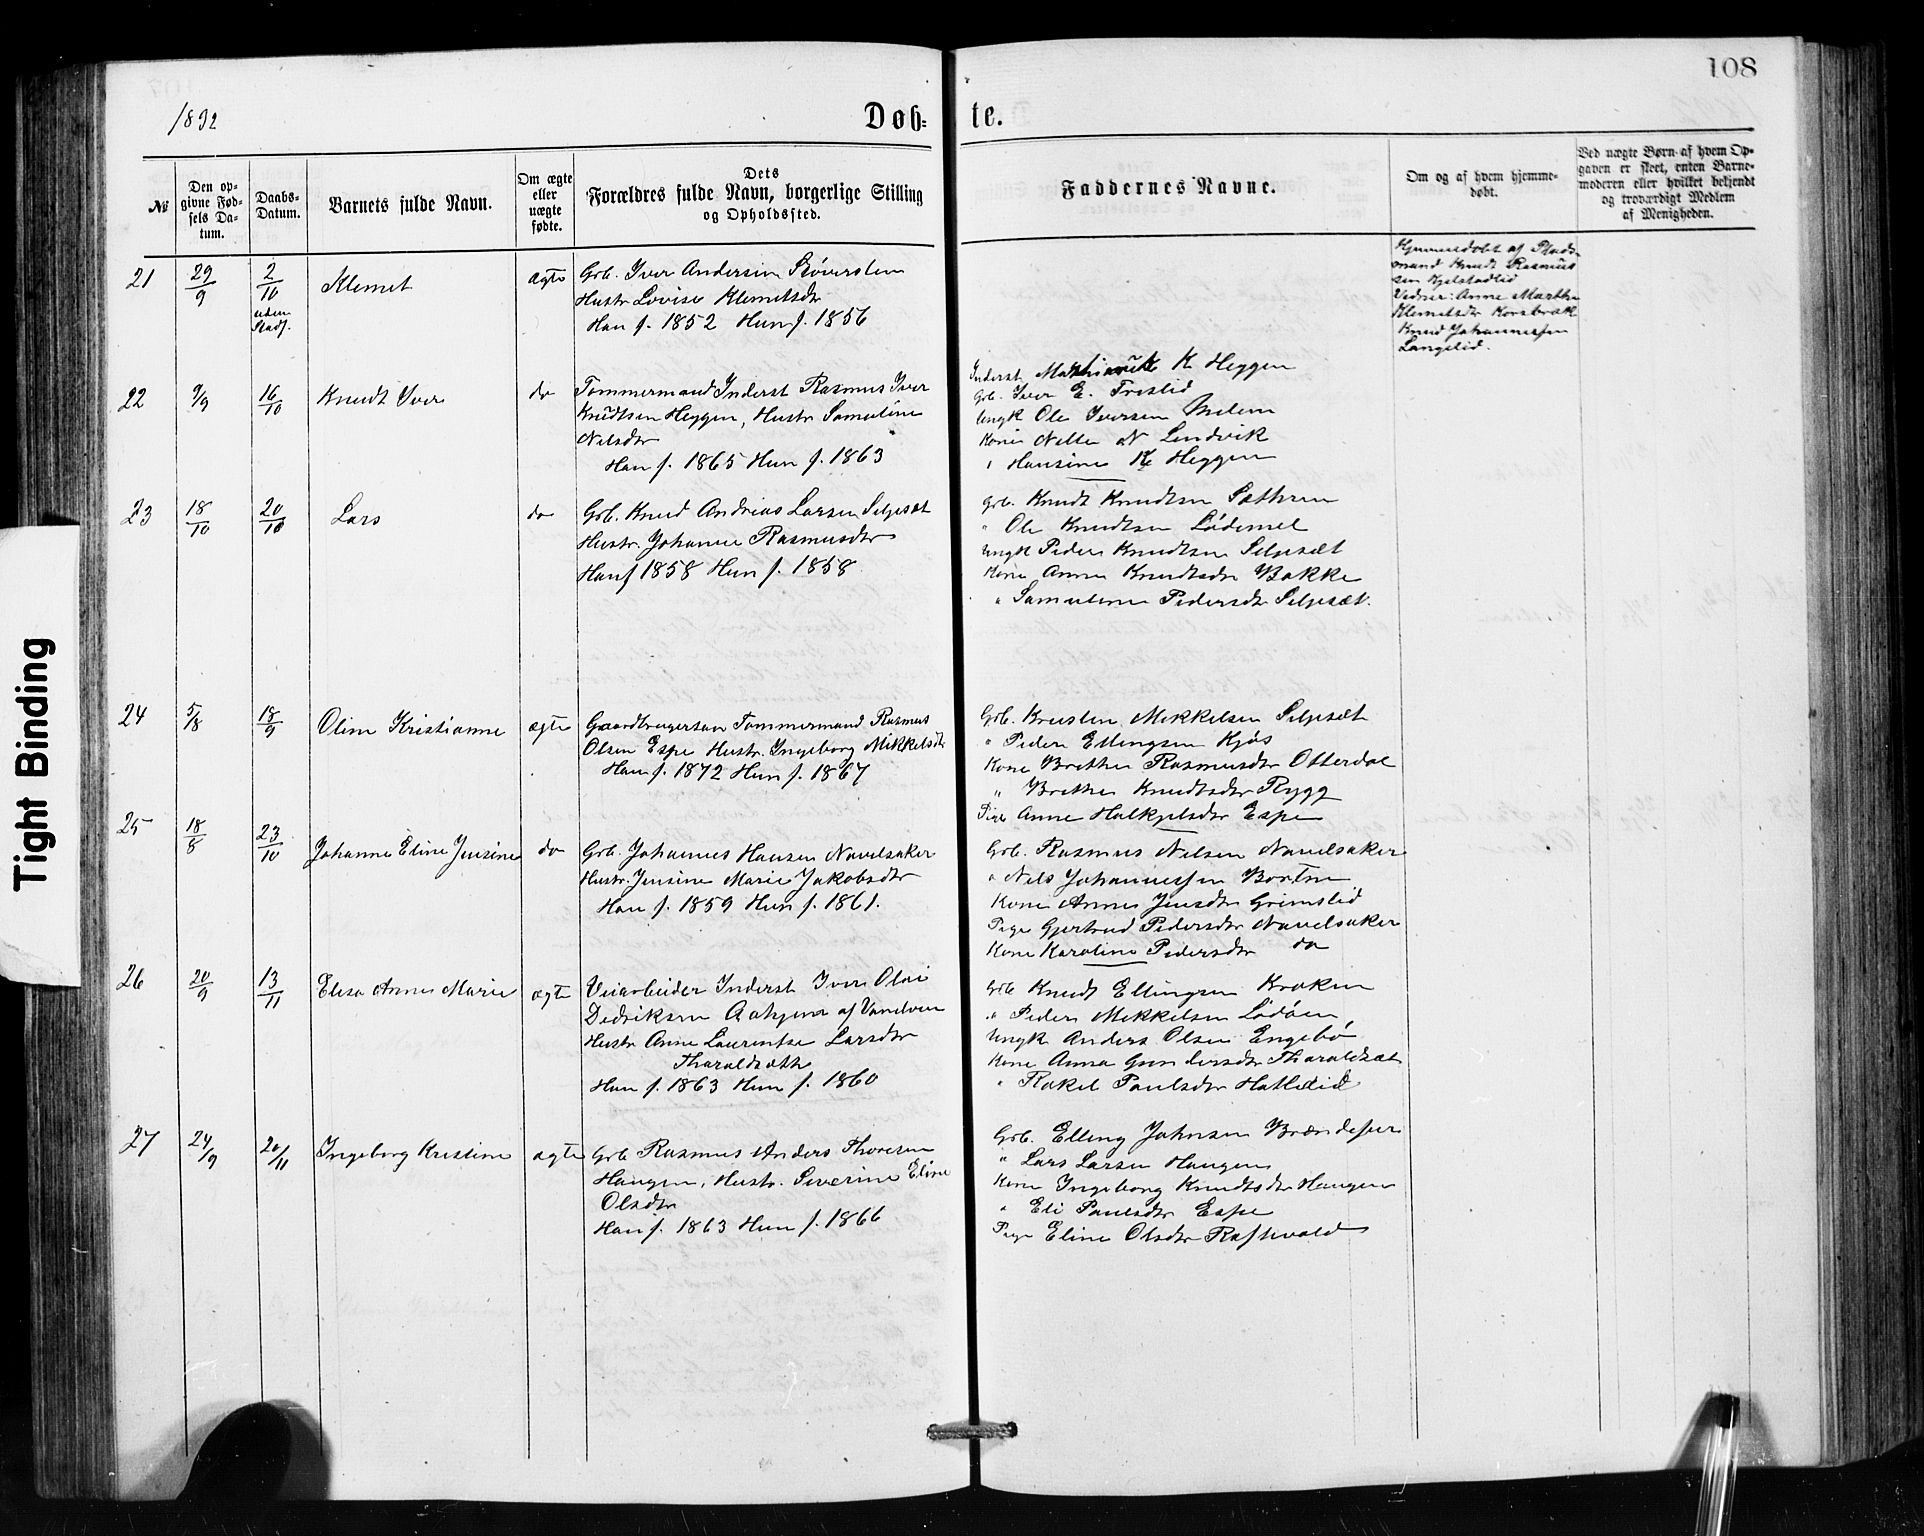 108
1892
Døb-
te.
№
Den op-
givne Fød-
sels Da-
tum.
Daabs-
Datum.
Barnets fulde Navn.
Om ægte
eller
uægte
fødte.
Dets
Forældres fulde Navn, borgerlige Stilling
og Opholdssted.
Faddernes Navne.
Om og af hvem hjemme-
døbt.
Ved uægte Børn af hvem Op-
gaven er skeet, enten Barne-
moderen eller hvilket bekjendt
og troværdigt Medlem
af Menigheden.
21
29/9
2/10
uden
Stadf.
Klemet
ægte
Grb. Iver Andersen
Hustr Lovise Klemetsdtr
Han f. 1852 Hun f. 1856
Hjemmedøbt af Plads
mand Knudt Rasmus
sen Kjelstadlid
Vidner: Anne Marthe
Klemetsdtr Korsbræk
Knud Johannessen
Langelid.
22
9/9
16/10
Knudt Iver
do
Tømmermand Inderst Rasmus Iver
Knudtsen Heggen, Hustr Samuline
Nilsdtr
Han f. 1865 Hun f. 1863
Inderst K Heggen
Grb. Iver E. Treslid
Ungk Ole Iversen Melem
Kone N Lundvik
" Hansine K Heggen
23
18/10
20/10
Lars
do
Grb. Knud Andreas Larsen Seljesæt
Hustr. Johanne Rasmusdtr
Han f 1858 Hun f. 1858
Grb. Knudt Knudtsen Sæthren
" Ole Knudtsen Lødemel
Ungk Peder Knudtsen Seljesæt
Kone Anne Knudtsdtr Bakke
" Samuline Pedersdtr Seljesæt.
24
5/8
18/9
Oline Kristianne
ægte
Gaardbrugersøn Tømmermand Rasmus
Olsen Espe Hustr. Ingeborg Mikkelsdtr
Han f. 1872 Hun f. 1867
Grb. Kristen Mikkelsen Seljesæt
" Peder Ellingsen Kjøs
Kone Brethe Rasmusdtr Otterdal
" Brethe Knudtsdtr Rygg
Pige Anne Halkjelsdtr Espe
25
18/8
23/10
Johanne Eline Jensine
do
Grb. Johannes Hansen Navelsaker
Hustr. Jensine Marie Jakobsdtr
Han f. 1859 Hun f. 1861.
Grb. Rasmus Nilsen Navelsaker
" Nils Johannessen Bortne
Kone Anne Jensdtr Grimslid
Pige Gjertrud Pedersdtr Navelsaker
Kone Karoline Pedersdtr do
26
20/9
13/11
Elisa Anne Marie
ægte
Veiarbeider Inderst Iver Olai
Didriksen af Vanelven
Hustr Anne Laurentse Larsdtr
Tharaldsæth
Han f. 1863 Hun f. 1860
Grb Knudt Ellingsen Kroken
" Peder Mikkelsen Lødøen
Ungk Anders Olsen Engebø
Kone Anna Gundersdtr Tharaldsæt
" Rakel Paulsdtr Hatledid
27
24/9
20/11
Ingeborg Kristine
ægte
Grb Rasmus Anders Thoresen
Haugen, Hustr. Severine Eline
Olsdtr
Han f. 1863 Hun f. 1866
Grb. Elling Johnsen
" Lars Larsen Haugen
Kone Ingeborg Knudtsdtr Haugen
" Eli Paulsdtr Espe
Pige Eline Olsdtr Raftevold
Tight Binding